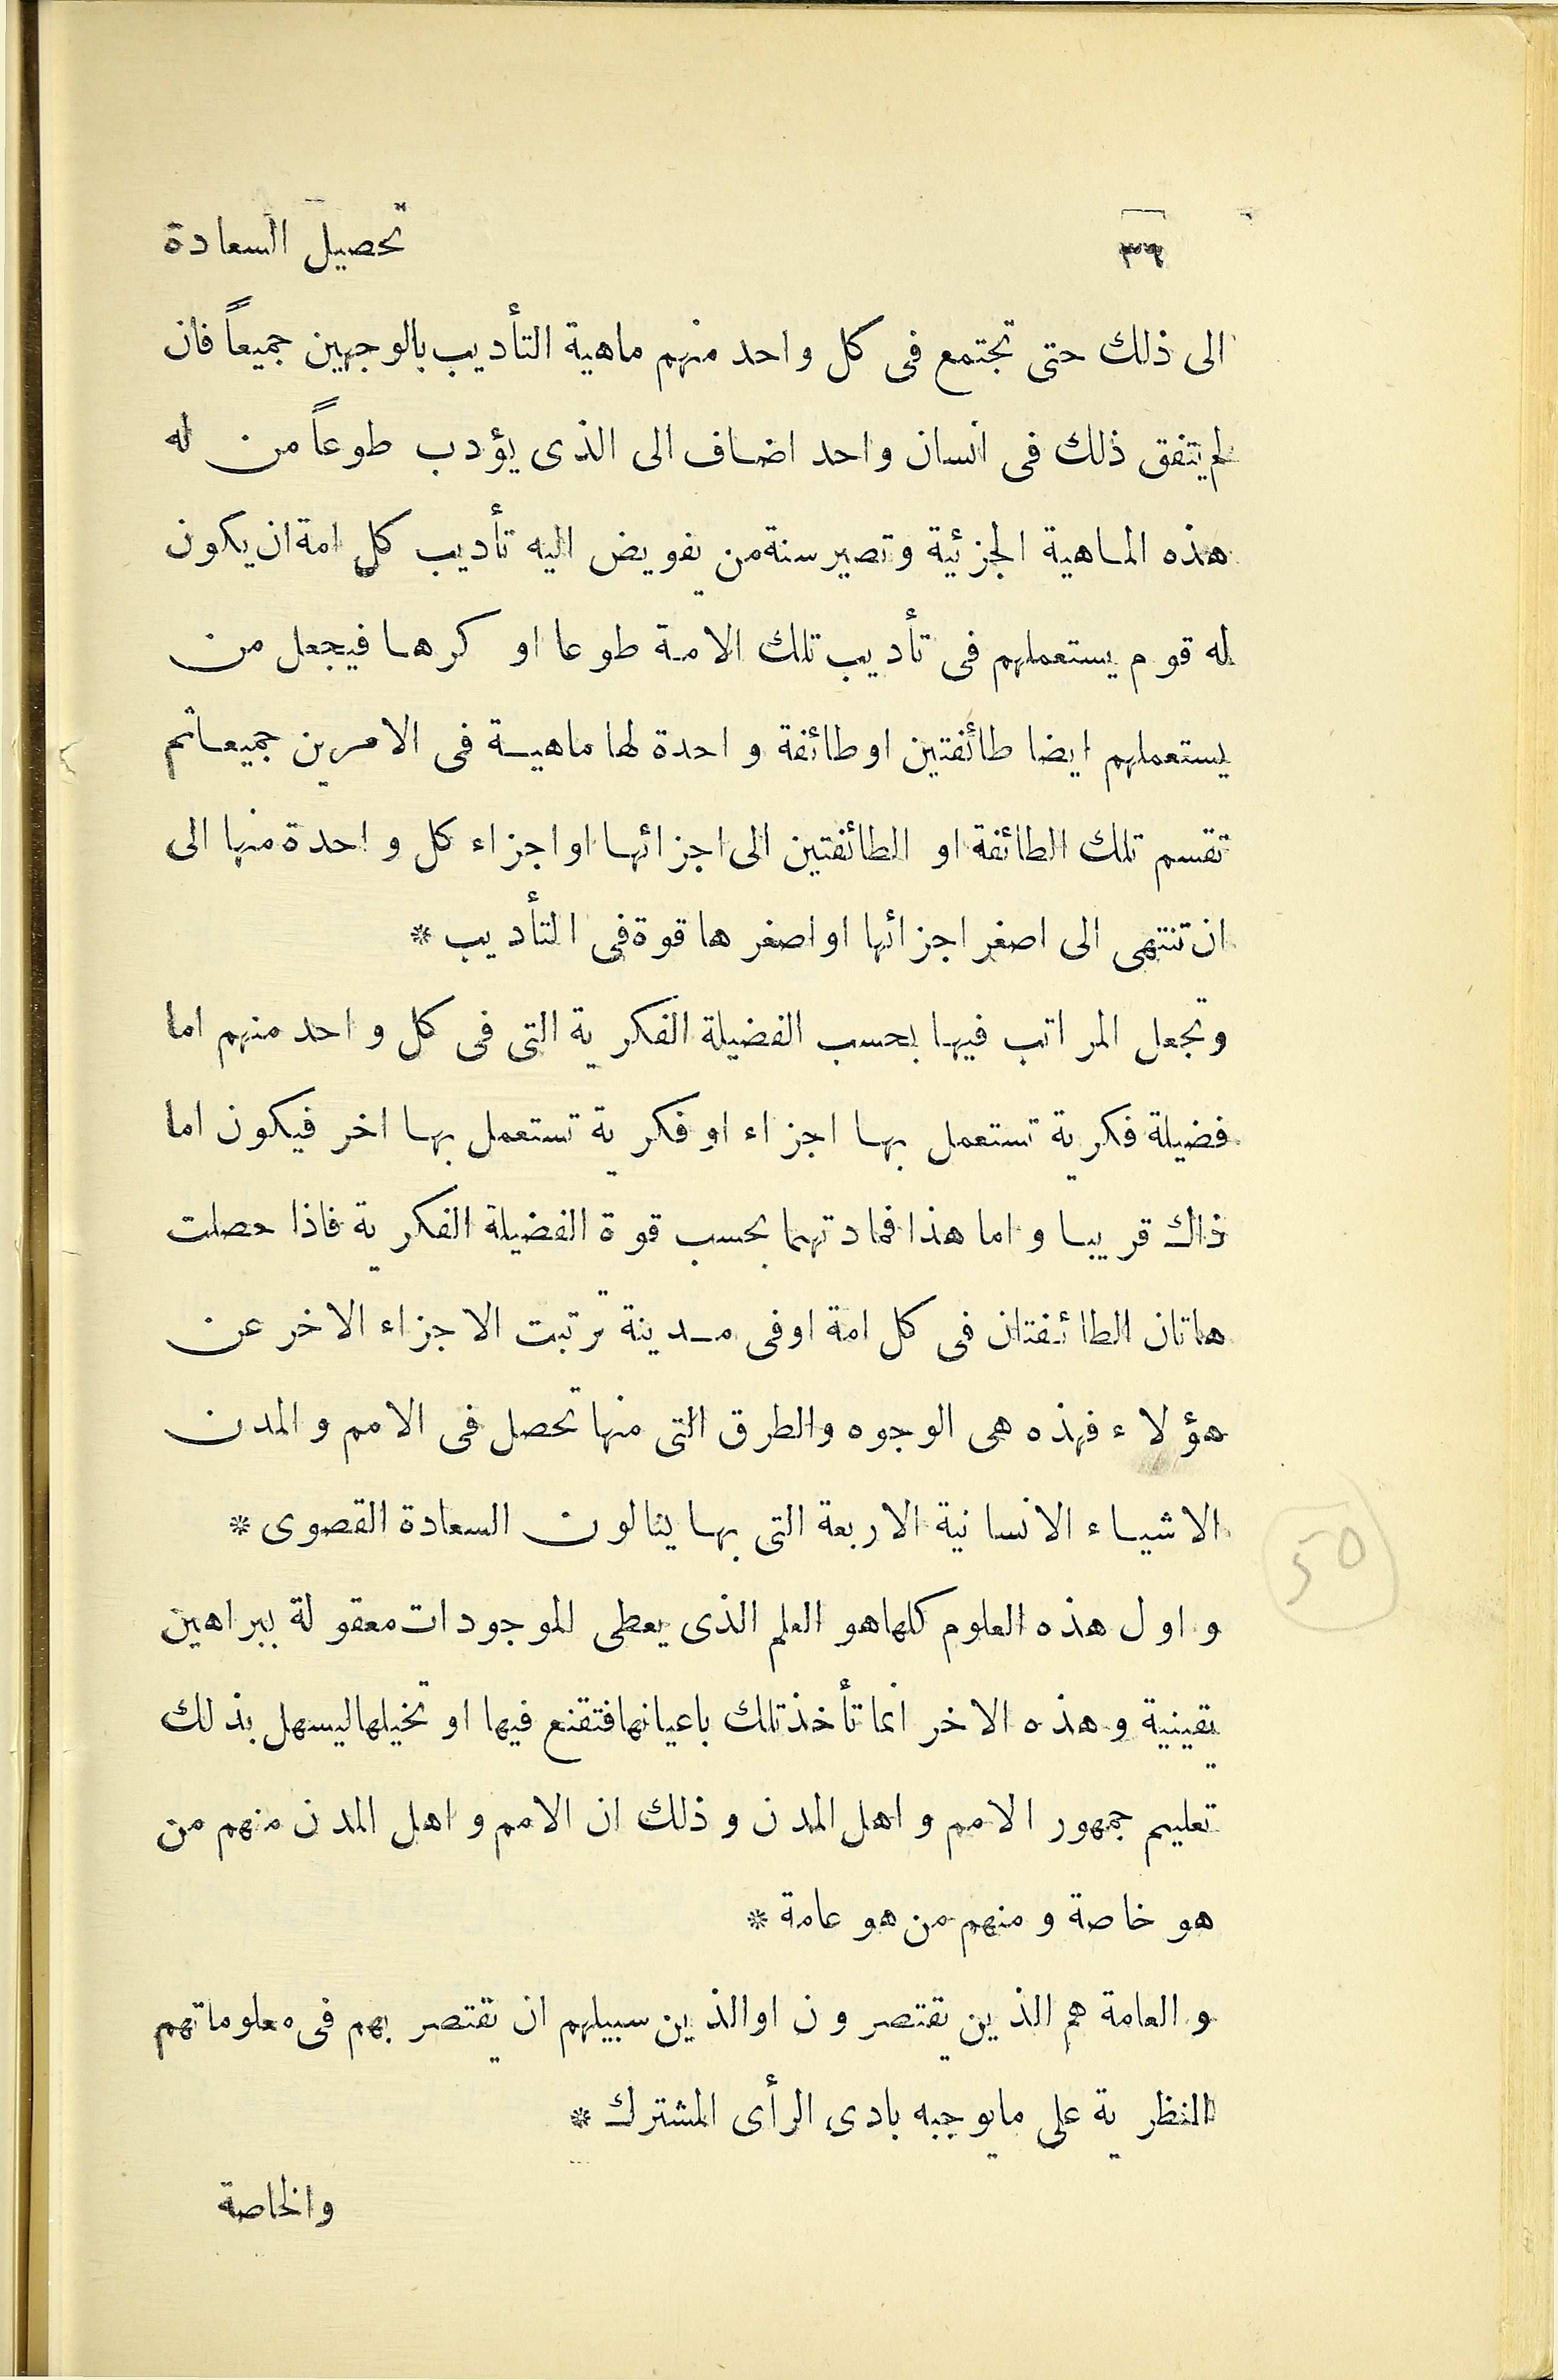 ٣٦ تحصيل السعادة
الى ذلك حتى تجتمع فى كل واحد منهم ماهية التأديب بالوجهين جميعاً فان
لم يتفق ذلك فى انسان واحد اضاف الى الذى يؤدب طوعاً من له
هذه الماهية الجزئية وتصير سنة من يفويض اليه تأديب كل امة ان يكون
له قوم يستعملهم فى تأديب تلك الامة طوعا او كرها فيجعل من
يستعملهم ايضا طائفتين او طائفة واحدة لها ماهية فى الامرين جميعا ثم
تقسم تلك الطائفة او الطائفتين الى اجزائها او اجزاء كل واحدة منها الى
ان تنتهى الى اصغر اجزائها او اصغرها قوة فى التأديب *
وتجعل المراتب فيها بحسب الفضيلة الفكرية التى فى كل واحد منهم اما
فضيلة فكرية تستعمل بها اجزاء او فكرية تستعمل بها اخر فيكون اما
ذاك قريبا واما هذا فمادتهما بحسب قوة الفضيلة الفكرية فاذا حصلت
هاتان الطائفتان فى كل امة او فى مدينة ترتبت الاجزاء الاخر عن
هؤلاء فهذه هى الوجوه والطرق التى منها تحصل فى الامم والمدن
الاشياء الانسانية الاربعة التى بها ينالون السعادة القصوى *
واول هذه العلوم كلها هو العلم الذى يعطى الموجودات معقولة ببراهين
يقينية وهذه الاخر انما تأخذ تلك باعيانها فتقنع فيها او تخيلها ليسهل بذلك
تعليم جمهور الامم واهل المدن وذلك ان الامم واهل المدن منهم من
هو خاصة ومنهم من هو عامة *
والعامة هم الذين يقتصرون او الذين سبيلهم ان يقتصر بهم فى معلوماتهم
النظرية على ما يوجبه بادى الرأى المشترك *
والخاصة